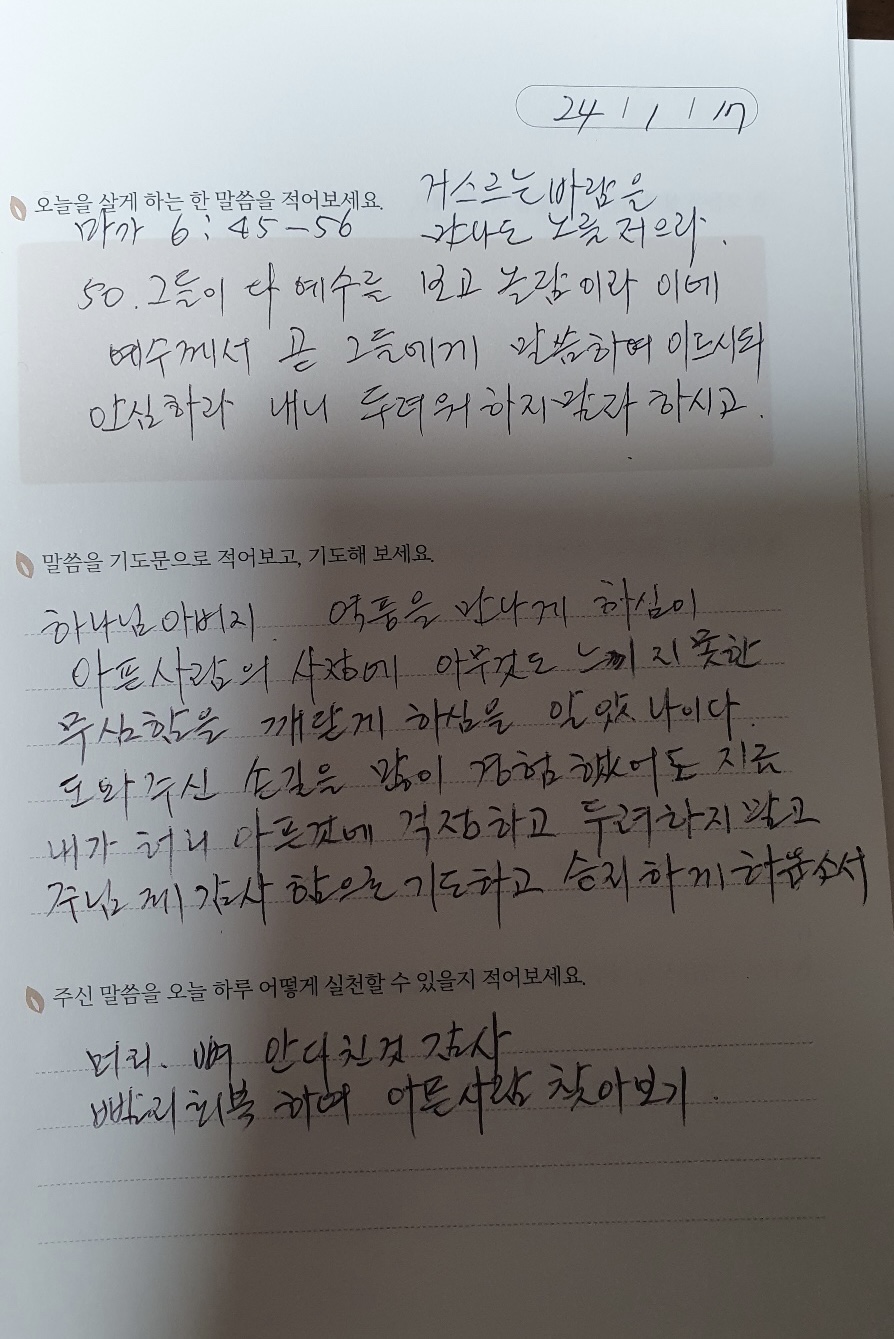 24 / 1 / 17
오늘을 살게 하는 한 말씀을 적어보세요.
거스르는 바람을
만나도 노를 저으라.
마가 6:45-56
50. 그들이 다 예수를 보고 놀람이라 이에
예수께서 곧 그들에게 말씀하여 이르시되
안심하라 내니 두려워 하지 말라 하시고.
말씀을 기도문으로 적어보고, 기도해 보세요.
하나님 아버지 역풍을 만나게 하심이
아픈 사람의 사정에 아무것도 느끼지 못한
무심함을 깨닫게 하심을 알았나이다.
도와 주신 손길을 많이 경험했어도 지금
내가 허리 아픈것에 걱정하고 두려하지 말고
주님께 감사함으로 기도하고 승리하게 하옵소서
주신 말씀을 오늘 하루 어떻게 실천할 수 있을지 적어보세요.
머리. 뼈 안다친것 감사
빨리 회복하여 아픈사람 찾아보기.